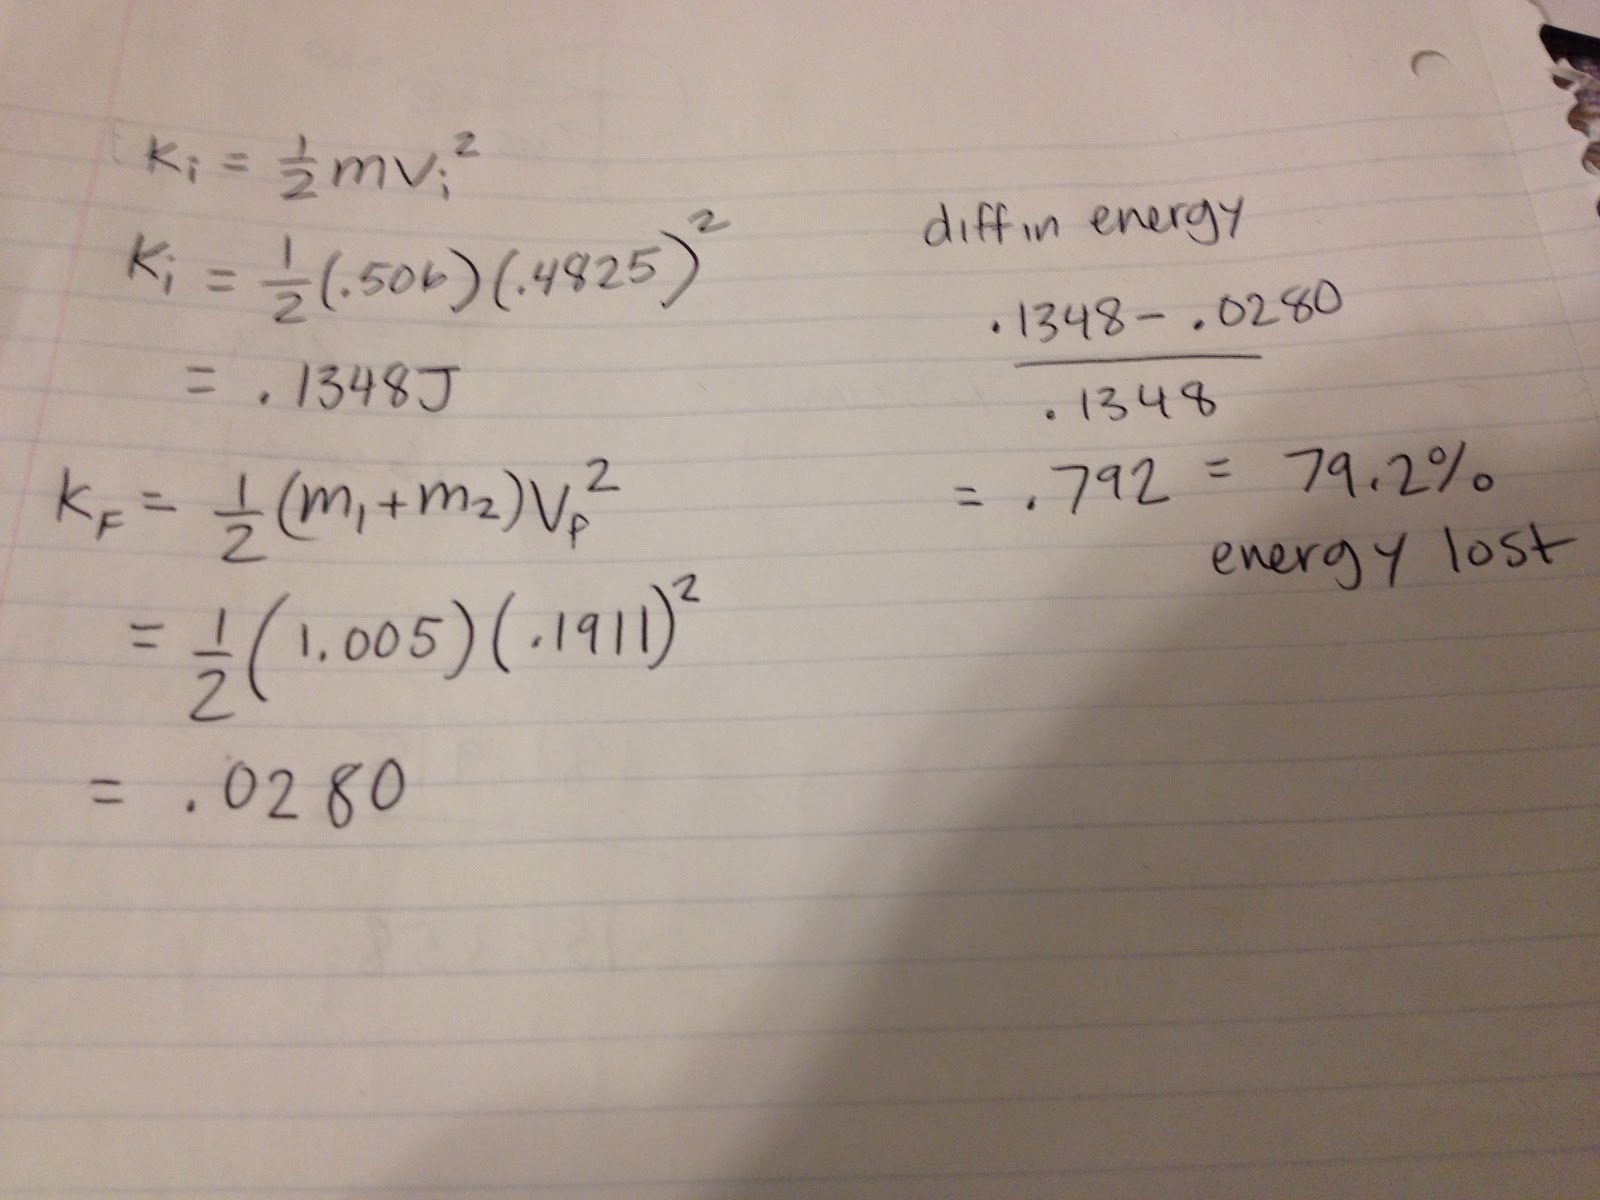 Ki = 1/2 mvi²
Ki = 1/2 (.506)(.4825)²
= .1348J
KF = 1/2 (m1+m2)Vf²
= 1/2 (1.005)(.1911)²
= .0280
diff in energy
.1348 - .0280
.1348
= .792 = 79.2%
energy lost